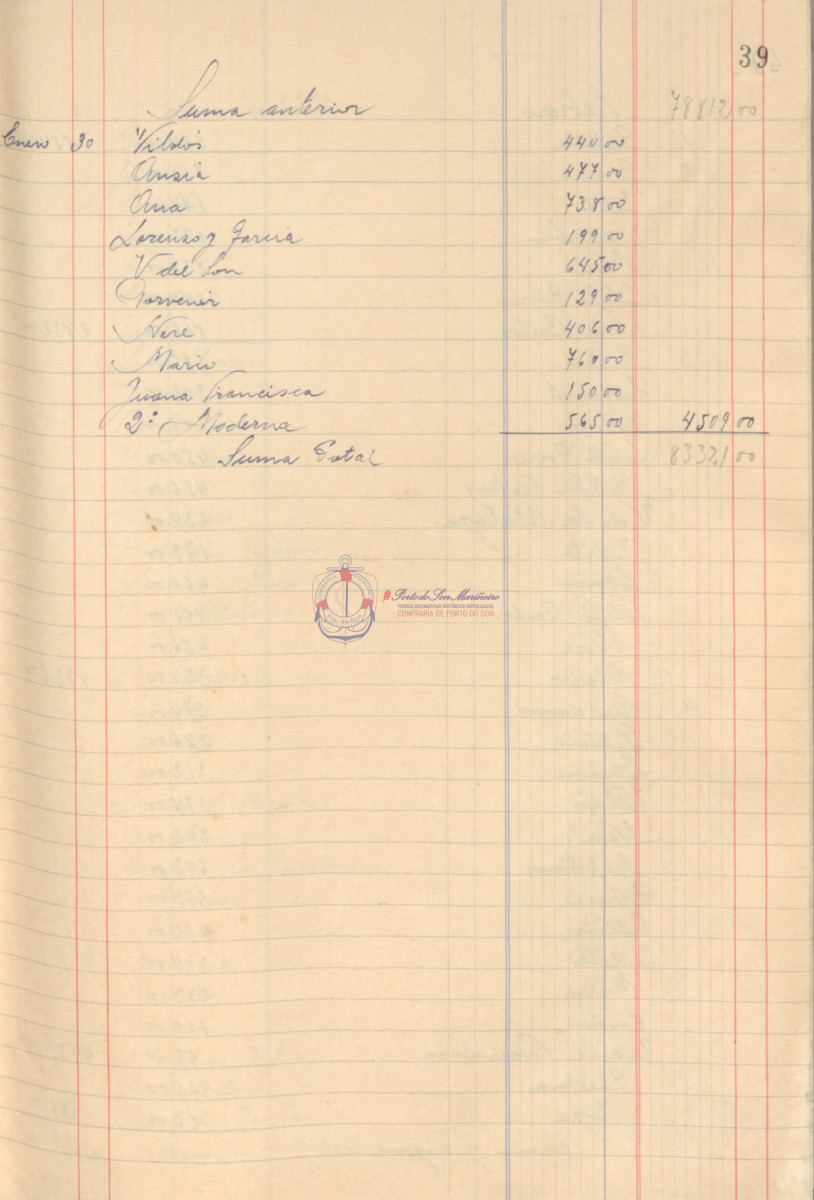 39
Suma anterior 78812,00
Enero 30 Vildós 440 00
Ansiá 477 00
Ana 738 00
Lorenzo y Garcia 199 00
V del Son 645 00
Porvenir 129 00
Nere 406 00
Mario 760 00
Juana Francisca 150 00
2ª Moderna 565 00 4509 00
Suma Total 83321 00
#Porto do Son Mariñeiro
FONDOS DOCUMENTAIS HISTÓRICOS DIXITALIZADOS
CONFRARÍA DE PORTO DO SON